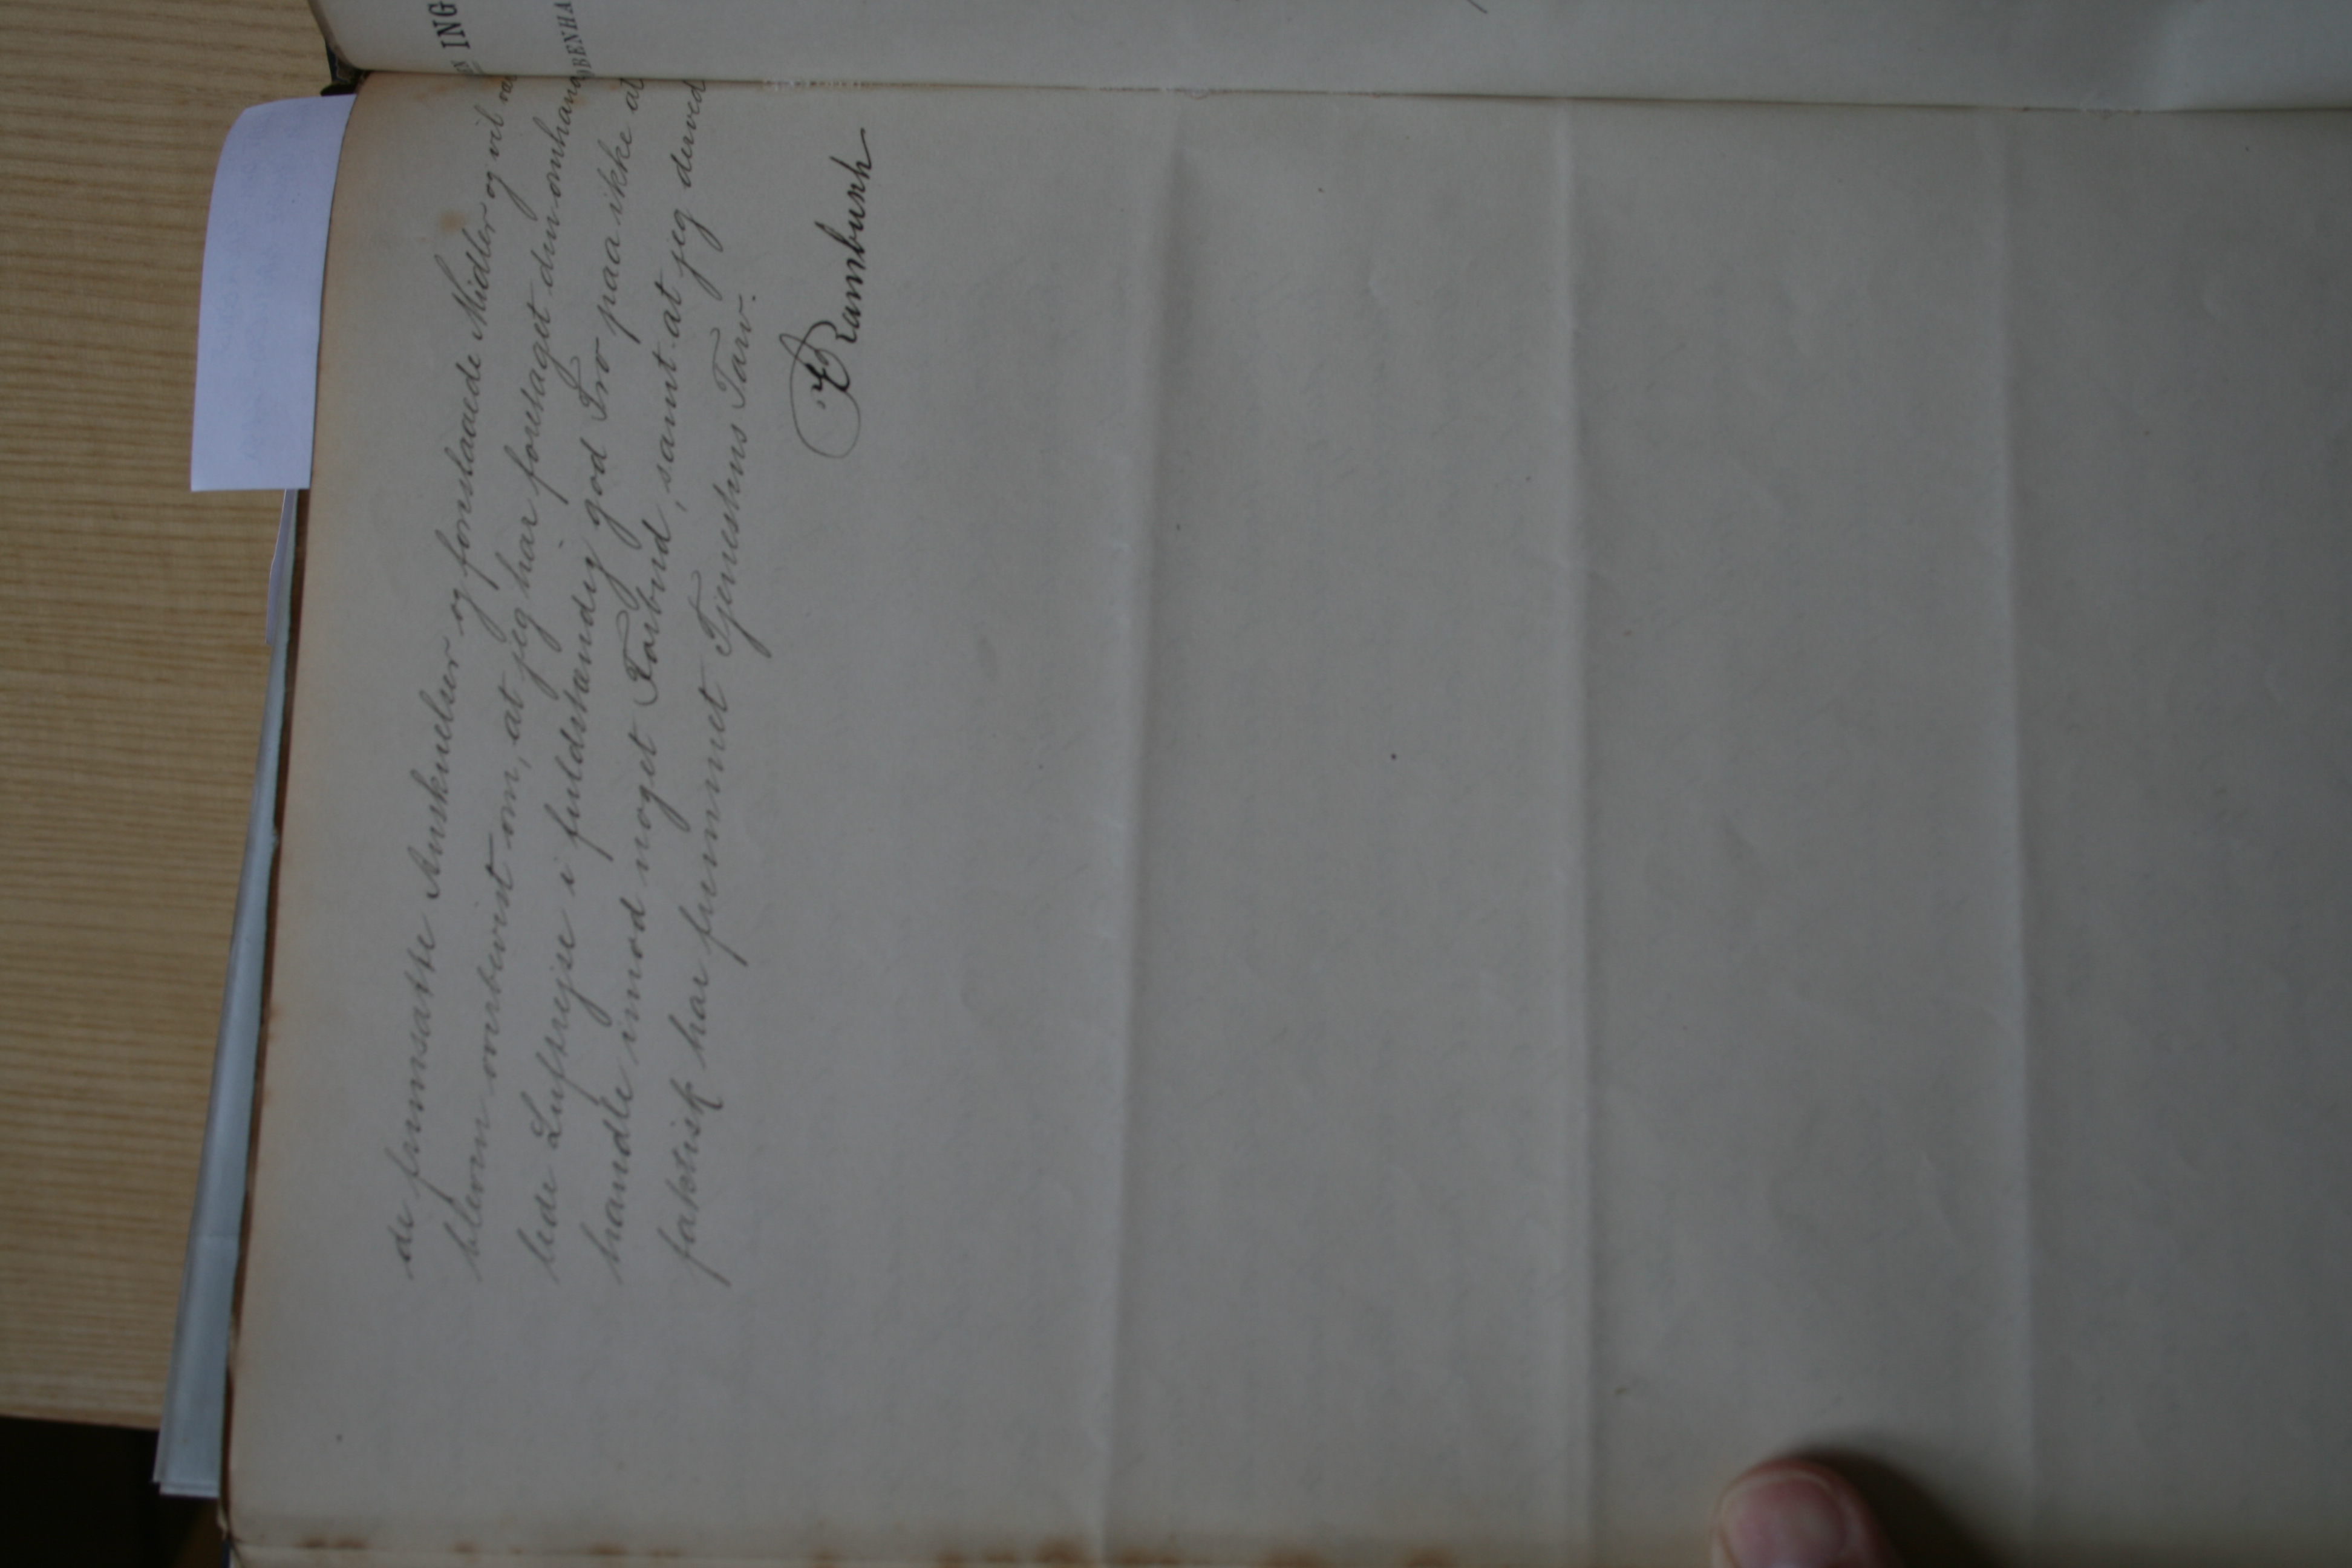 de fremsatte Anskuelser og foreslaaede Midler og vil væ
bleven overbevist om, at jeg har foretaget den omhand
lede Luftrejse i fuldstændig god Tro paa ikke at
handle imod noget Forbud, samt at jeg derved
faktisk har fremmet Tjenestens Tarv.
Rambusch
ING
BENHA